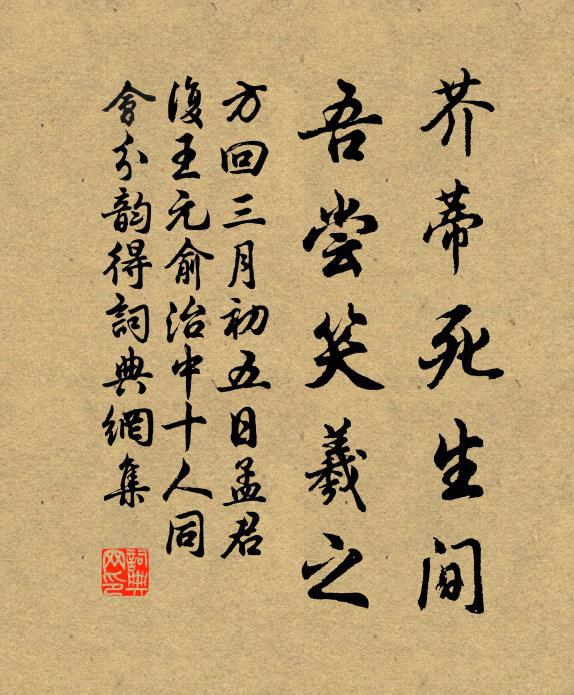 芥蒂死生间
吾尝笑羲之
方回三月初五日孟君
復王元俞治中十人同
會分韵得詞典網集
詞典网印